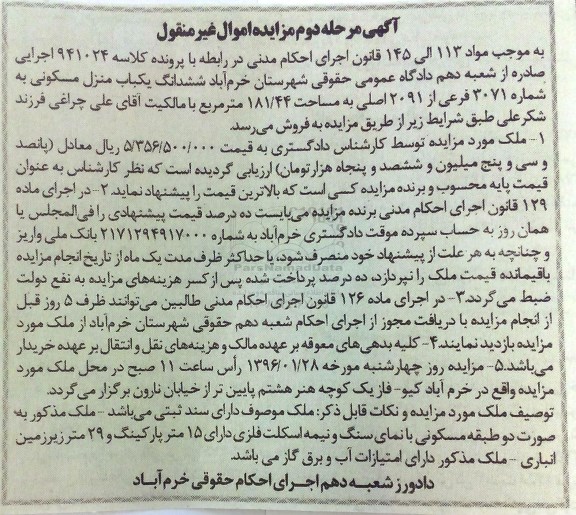 آگهی مرحله دوم مزایده اموال غیر منقول
به موجب مواد ۱۱۳ الی ۱۴۵ قانون اجرای احکام مدنی در رابطه با پرونده کلاسه ۹۴۱۰۲۴ اجرایی
صادره از شعبه دهم دادگاه عمومی حقوقی شهرستان خرم‌آباد ششدانگ یکباب منزل مسکونی به
شماره ۳۰۷۱ فرعی از ۲۰۹۱ اصلی به مساحت ۱۸۱/۴۴ مترمربع با مالکیت آقای علی چراغی فرزند
شکرعلی طبق شرایط زیر از طریق مزایده به فروش می‌رسد.
۱- ملک مورد مزایده توسط کارشناس دادگستری به قیمت ۵/۳۵۶/۵۰۰/۰۰۰ ریال معادل (پانصد
و سی و پنج میلیون و ششصد و پنجاه هزار تومان) ارزیابی گردیده است که نظر کارشناس به عنوان
قیمت پایه محسوب و برنده مزایده کسی است که بالاترین قیمت را پیشنهاد نماید. ۲- در اجرای ماده
۱۲۹ قانون اجرای احکام مدنی برنده مزایده می‌بایست ده درصد قیمت پیشنهادی را فی‌المجلس یا
همان روز به حساب سپرده موقت دادگستری خرم‌آباد به شماره ۲۱۷۱۲۹۴۹۱۷۰۰۰ بانک ملی واریز
و چنانچه به هر علت از پیشنهاد خود منصرف شود، یا حداکثر ظرف مدت یک ماه از تاریخ انجام مزایده
باقیمانده قیمت ملک را نپردازد، ده درصد پرداخت شده پس از کسر هزینه‌های مزایده به نفع دولت
ضبط می‌گردد. ۳- در اجرای ماده ۱۲۶ قانون اجرای احکام مدنی طالبین می‌توانند ظرف ۵ روز قبل
از انجام مزایده با دریافت مجوز از اجرای احکام شعبه دهم حقوقی شهرستان خرم‌آباد از ملک مورد
مزایده بازدید نمایند. ۴- کلیه بدهی‌های معوقه بر عهده مالک و هزینه‌های نقل و انتقال بر عهده خریدار
می‌باشد. ۵- مزایده روز چهارشنبه مورخه ۱۳۹۶/۰۱/۲۸ رأس ساعت ۱۱ صبح در محل ملک مورد
مزایده واقع در خرم آباد کیو- فاز یک کوچه هنر هشتم پایین تر از خیابان نارون برگزار می‌گردد.
توصیف ملک مورد مزایده و نکات قابل ذکر: ملک موصوف دارای سند ثبتی می‌باشد -ملک مذکور به
صورت دو طبقه مسکونی با نمای سنگ و نیمه اسکلت فلزی دارای ۱۵ متر پارکینگ و ۲۹ متر زیرزمین
انباری -ملک مذکور دارای امتیازات آب و برق گاز می باشد.
دادورز شعبه دهم اجرای احکام حقوقی خرم‌آباد
ParsNamadData